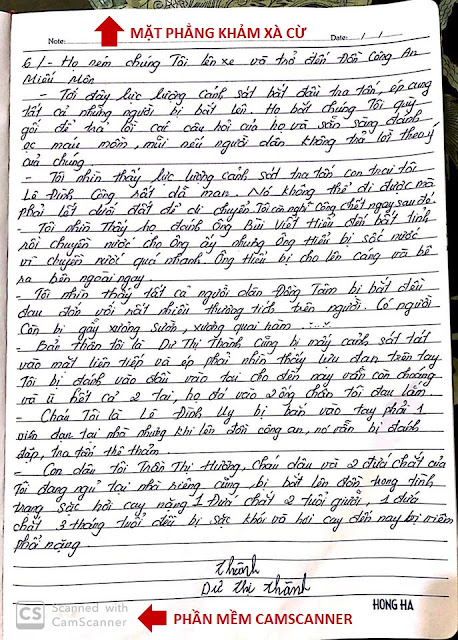 MẶT PHẲNG KHẢM XÀ CỪ
Note: Date: / /
6/- Họ ném chúng Tôi lên xe và trở đến Đồn Công An
Miếu Môn
- Tới đây lực lượng cảnh sát bắt đầu tra tấn, ép cung
tất cả những người bị bắt lên. Họ bắt chúng Tôi quỳ
gối để trả lời các câu hỏi của họ và sẵn sàng đánh
ọc máu mồm, mũi nếu người dân không trả lời theo ý
của chúng.
- Tôi nhìn thấy lực lượng cảnh sát tra tấn con trai tôi
Lê Đình Công rất dã man. Nó không thể đi được mà
phải lết dưới đất để di chuyển. Tôi còn nghĩ Công chết ngay sau đó
- Tôi nhìn Thấy họ đánh Ông Bùi Viết Hiểu đến bất tỉnh
rồi chuyền nước cho Ông ấy nhưng Ông Hiểu bị sốc nước
vì chuyền nước quá nhanh Ông Hiểu bị cho lên cáng và bê
ra bên ngoài ngay
- Tôi nhìn thấy tất cả người dân Đồng Tâm bị bắt đều
đau đớn với rất nhiều thương tích trên người. Có người
Còn bị gẫy xương sườn, xương quai hàm
- Bản Thân tôi là Dư Thị Thành Cũng bị mấy cảnh sát tát
vào mặt liên tiếp và ép phải nhìn thấy lựu đạn trên tay
Tôi bị đánh vào đầu vào tai cho đến nay vẫn còn choáng
và ù hết cả 2 tai, họ đá vào 2 ống chân Tôi đau lắm
- Cháu Tôi là Lê Đình Uy bị bắn vào tay phải 1
viên đạn tại nhà nhưng khi lên đồn công an, nó vẫn bị đánh
đập, tra tấn thê thảm
- Con dâu tôi Trần Thị Hường, Cháu dâu và 2 đứa chắt của
Tôi đang ngủ tại nhà riêng cũng bị bắt lên đồn trong tình
trạng sặc hơi cay nặng. 1 Đứa chắt 2 tuổi giưỡi, 1 đứa
chắt 3 tháng tuổi đều bị sặc khói và hơi cay đến nay bị viêm
phổi nặng
Thành
Dư Thị Thành
HONG HA
CS Scanned with
CamScanner
PHẦN MỀM CAMSCANNER